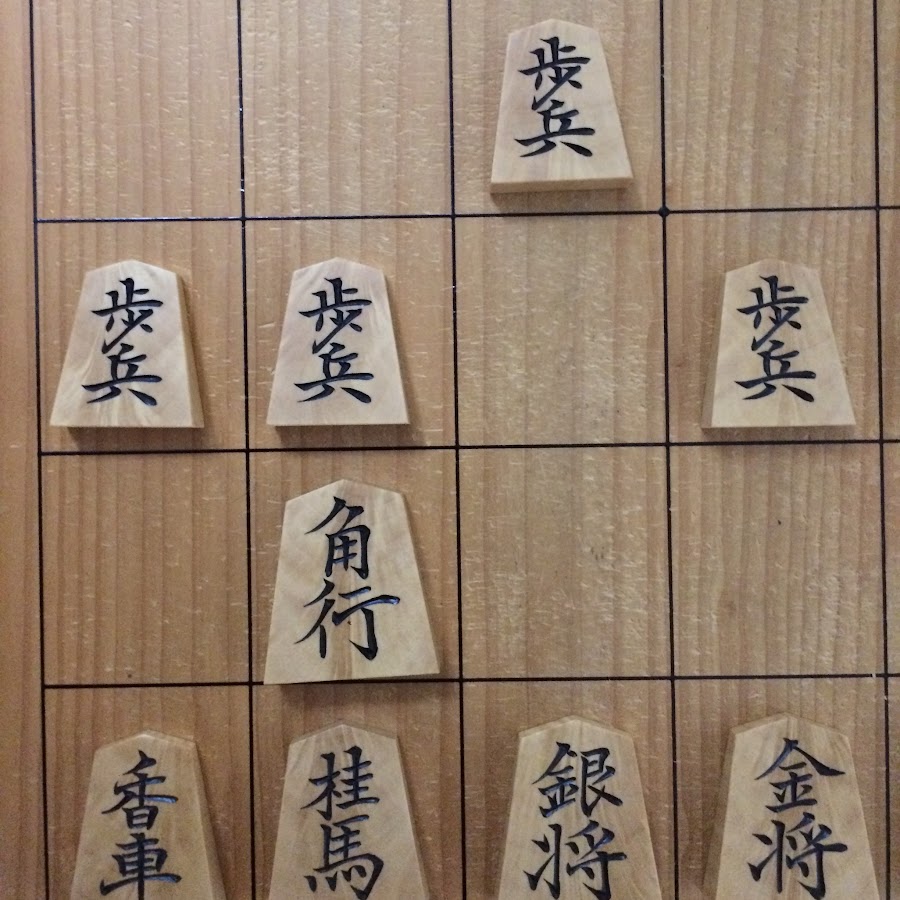 歩兵
歩兵
歩兵
歩兵
角行
香車
桂馬
銀将
金将